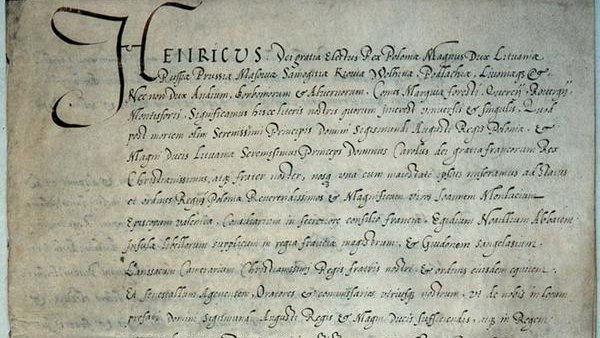 HENRICUS Dei gratia Electus Rex Poloniæ Magnus Dux Lituaniæ
Russiæ Prussiæ Masoviæ Samogitiæ Kioviæ Wolhiniæ Podlachiæ &
Nec non Dux Andium, Borboniorum & Alverniorum, Comes Marchiæ foresti
Montisfortii. Significamus hisce literis nostris quorum interest universis & singulis, Quod
post mortem olim Serenissimi Principis Domini Sigismundi Augusti Regis Poloniæ, &
Magni Ducis Lituaniæ Serenissimus Princeps Dominus Carolus dei gratia francorum Rex
Christianissimus, atque frater noster, una cum maiestate ad status
et ordines Regni Poloniæ Reverendissimos & Magnificum viros Joannem Monlucium
Episcopum valentiæ, Consiliarium in secretiore consilio franciæ, Egidium Noaillium Abbatem
Insulæ libellorum supplicum in regia franciæ magistrum, & Guidonem Sangelasium
Lanssacum Camerarium Christianissimi Regis fratris nostri, & ordinis eiusdem equitem
Et senescallum Oratores & commissarios utriusque nostrum, ut de nobis in locum
præfati Domini Sigismundi Augusti Regis & Magni Ducis sufficiendis, atque in Regem